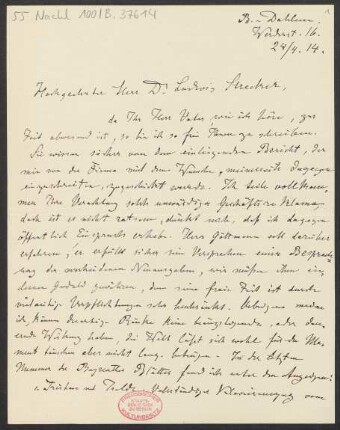 55 Nachl 100/B. 37614
1
B.-Dahlem.
24/4. 14.
Hochgeehrter Herr Dr. Ludwig Strecker,
da Ihr Herr Vater, wie ich höre, zur
Zeit abwesend ist, so bin ich so frei Ihnen zu schreiben.
Sie wissen sicher von dem einliegenden Bericht, der
mir von der Firma mit dem Wunsche, meinerseits dagegen
einzuschreiten, zugeschickt wurde. Ich teile vollkommen
Ihre Verachtung solch unwürdiger Geschäfts-Reklame,
doch ist es nicht ratsam, dünkt mich, daß ich dagegen
öffentlich Einspruch erhebe. Herr Göttmann soll darüber
erfahren, er erfüllt sicher sein Versprechen einer Besprechung
der verschiedenen Neuausgaben, wir müssen ihm aber
deren Geduld gewähren, denn seine freie Zeit ist durch
vielseitige Verpflichtungen sehr beschränkt. Uebrigens
können derartige keine oder dauernde
Wirkung haben, die Welt läßt sich wohl für den Moment
täuschen aber nicht lang betrügen. In der letzten
Nummer der Bayreuther Blätter fand ich unter den Anzeigen:
"Tristan und Isolde. Vollständiger Klavierauszug von